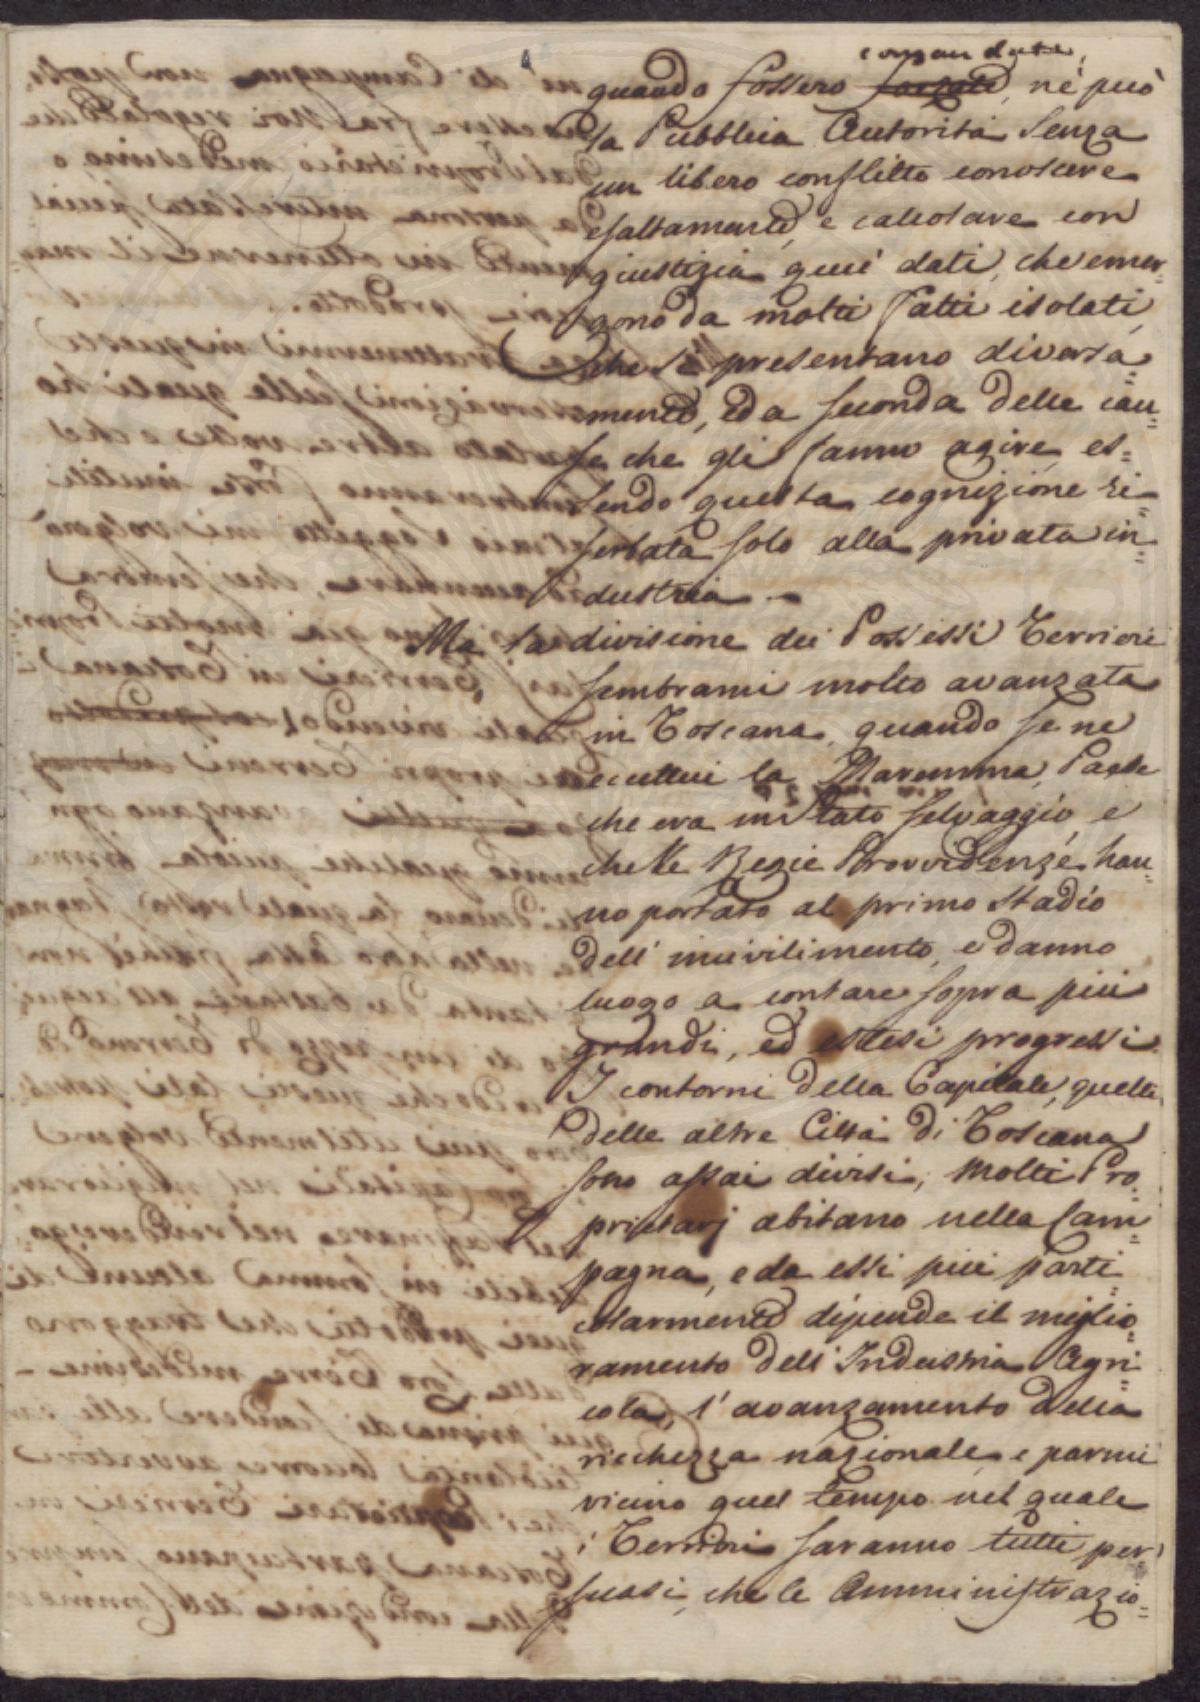 comandate,
quando fossero forzate, nè può
la Pubblica Autorità senza
un libero conflitto conoscere
esattamente, e calcolare con
giustizia quei dati, che emer=
gono da molti fatti isolati,
che si presentano diversa=
mente, ed a seconda delle cau=
se che gli fanno agire, es=
sendo questa cognizione ri=
serbata solo alla privata in=
dustria.
Ma la divisione dei Possessi Terrieri
sembrami molto avanzata
in Toscana, quando se ne
eccettui la Maremma, Paese
che era in stato selvaggio, e
che le Regie Provvidenze han=
no portato al primo stadio
dell' incivilimento, e danno
luogo a contare sopra più
grandi, ed estesi progressi.
I contorni della Capitale, quelli
delle altre Città di Toscana
sono assai divisi; Molti Pro=
prietarj abitano nella Cam=
pagna, e da essi più parti=
colarmente dipende il miglio=
ramento dell' Industria Agri=
cola, l' avanzamento della
ricchezza nazionale, e parmi
vicino quel tempo nel quale
i Terrieri saranno tutti per=
suasi, che le Amministrazio=